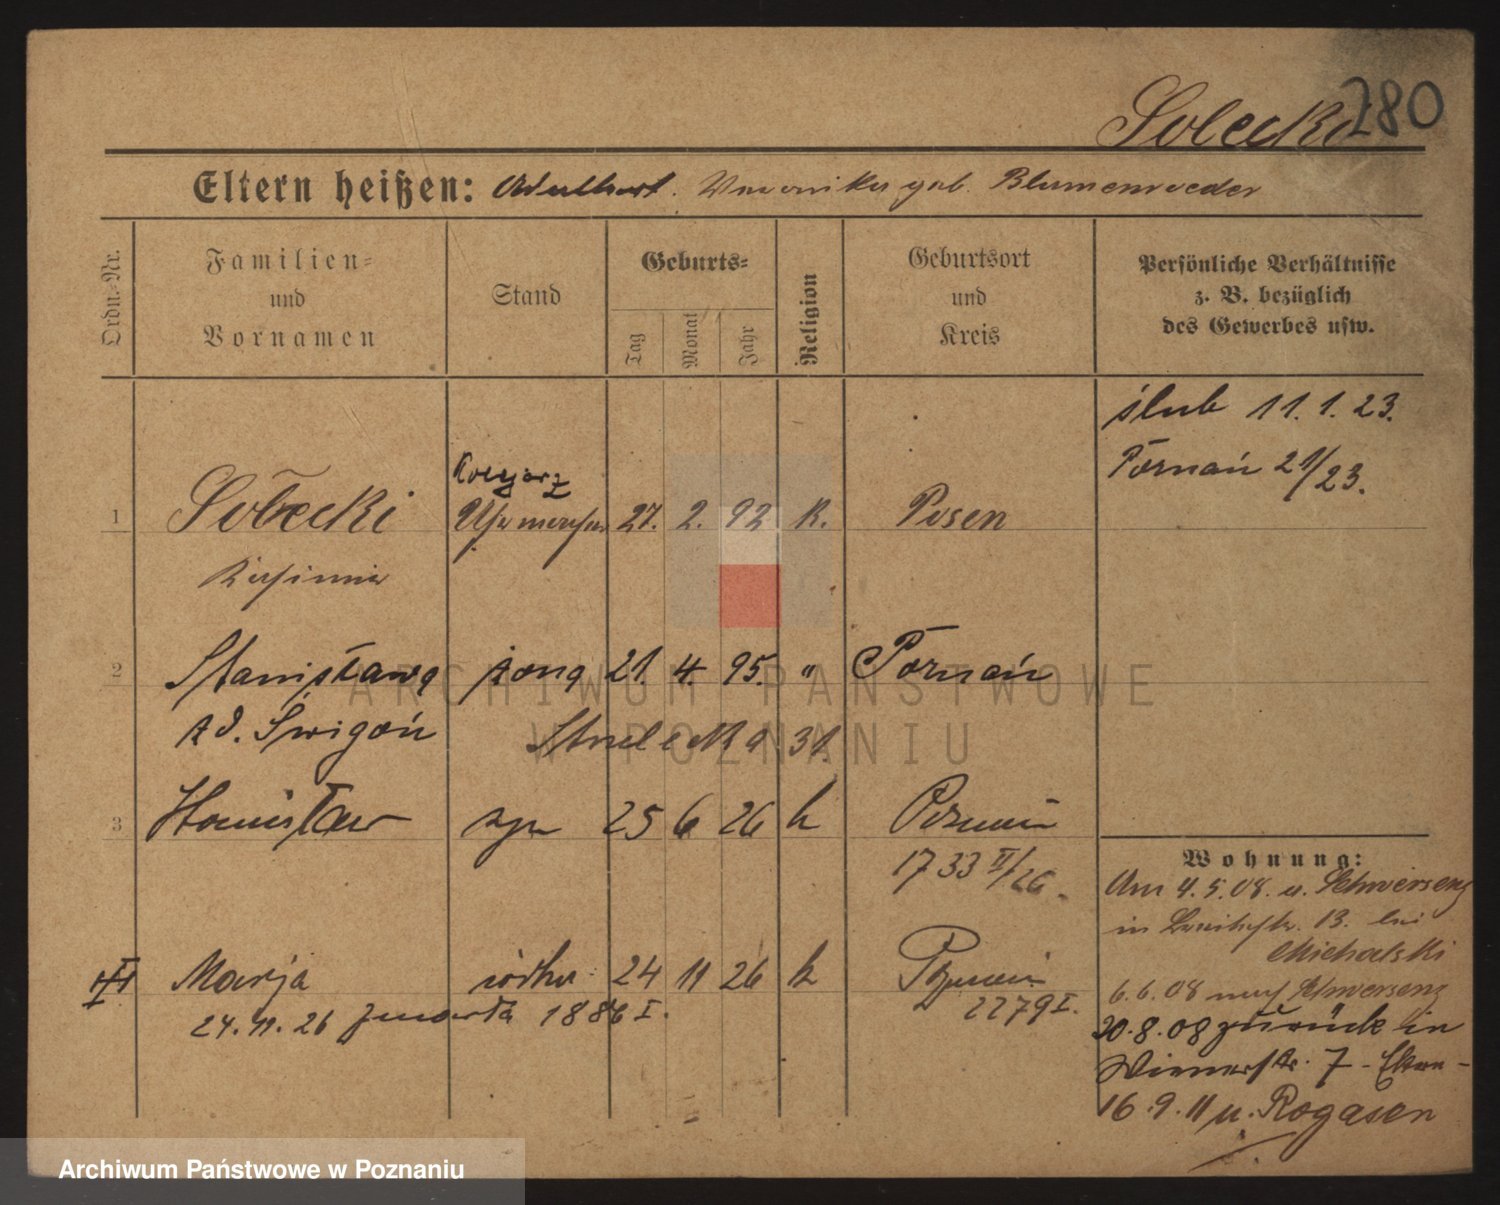 Sobecki 280
Eltern heißen: Adalbert. Veronika geb. Blumenroeder
Ordn.-Nr.
Familien-
und
Vornamen
Stand
Geburts-
Tag
Monat
Jahr
Religion
Geburtsort
und
Kreis
Persönliche Verhältnisse
z. B. bezüglich
des Gewerbes usw.
ślub 11. 1. 23.
Poznań 21/23.
1 Sobecki Uhrmacher 27. 2. 92 K. Posen
Kasimir
2 Stanisława żona 21. 4. 95. " Poznań
zd. Świgoń Strzelecka 31.
3 Stanisław syn 25 6 26 k Poznań
1733 II/26.
III Marja córka 24 11 26 k Poznań
24. 11. 26 zmarła 1886 I. 2279 I.
Wohnung:
Am 4. 5. 08. u. Schwersenz
in 13. bei
Michalski
6. 6. 08 nach Schwersenz
20. 8. 08 zurück in
Wienerstr. 7 - Eltern -
16. 9. 11 u. Rogasen
ARCHIWUM PAŃSTWOWE
W POZNANIU
Archiwum Państwowe w Poznaniu